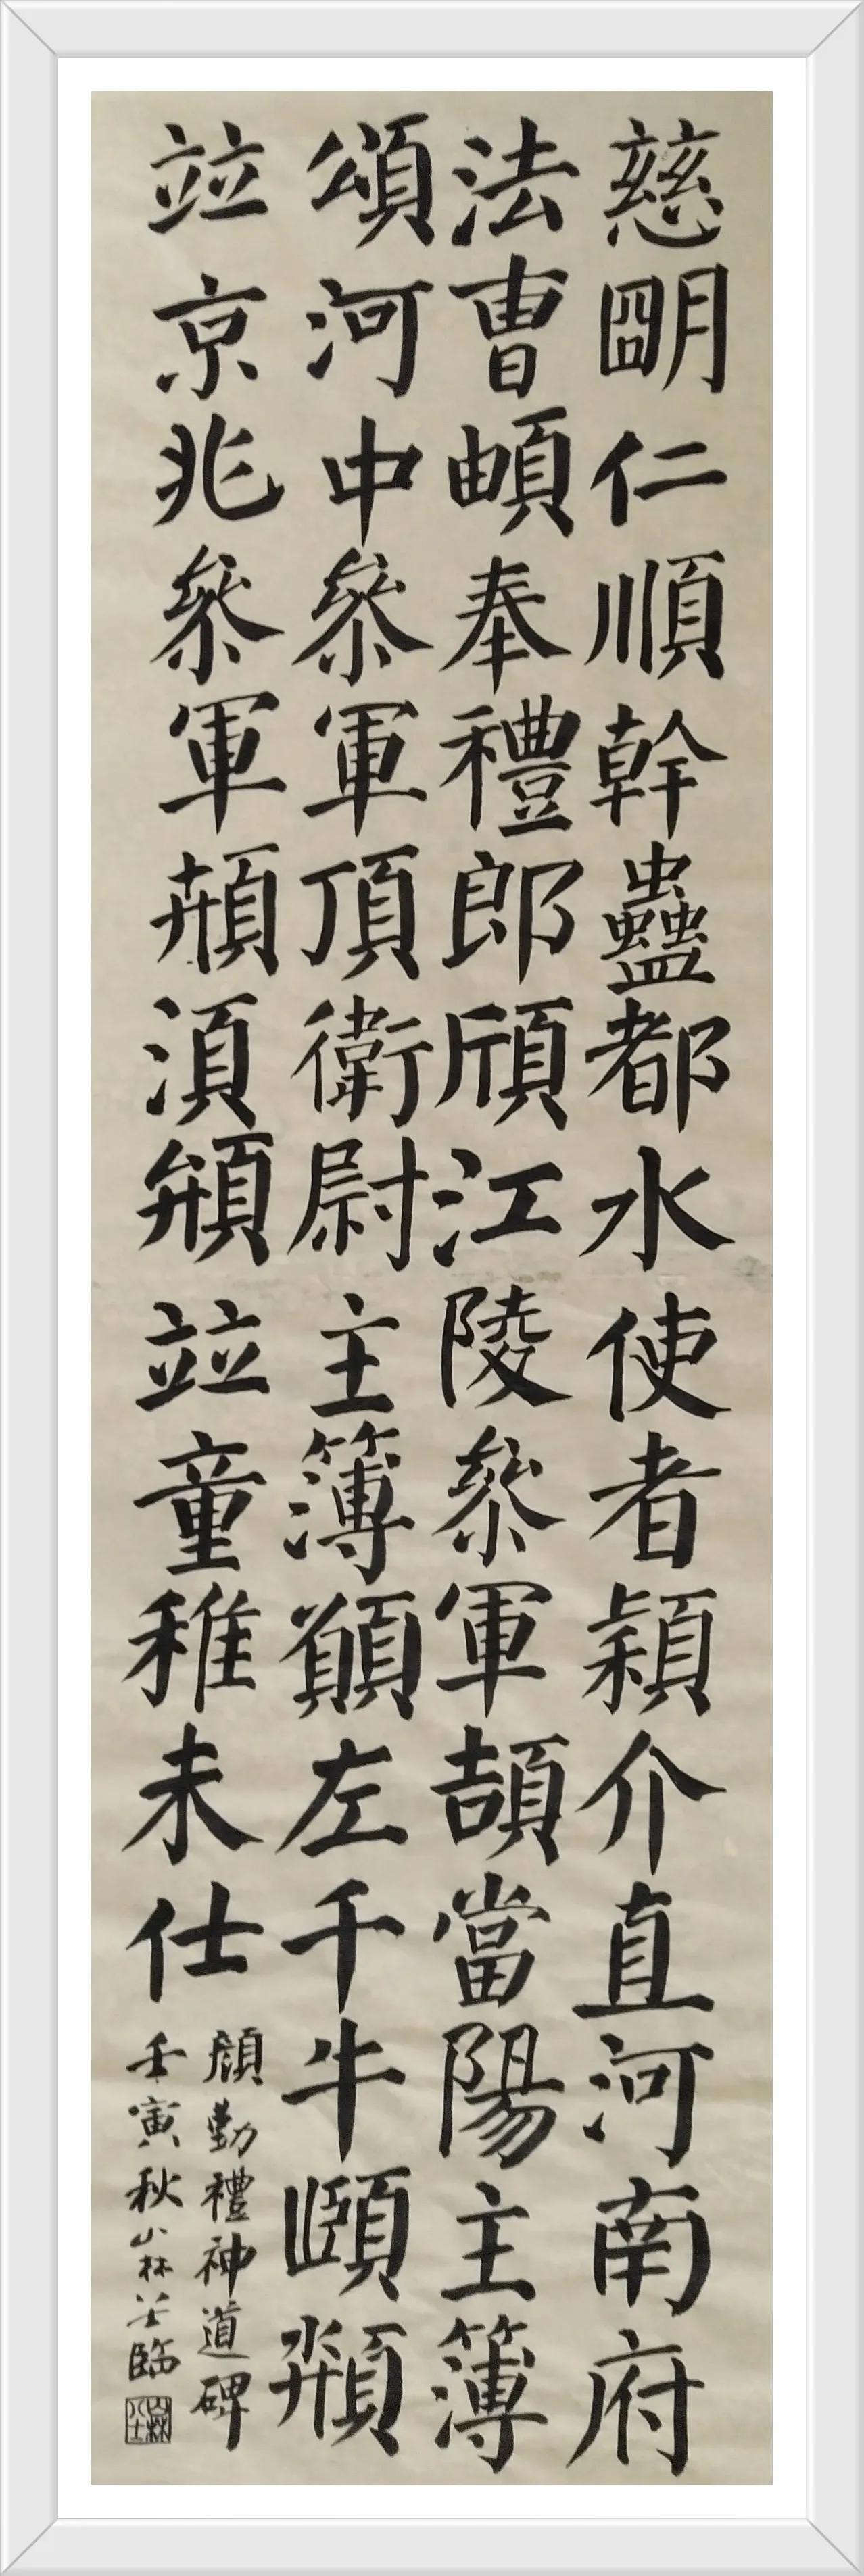 慈朙仁順幹蠱都水使者穎介直河南府
法曹頔奉禮郎頎江陵參軍頡當陽主簿
頌河中參軍頂衛尉主簿願左千牛頤頮
竝京兆參軍湏頩竝童稚未仕
顏勤禮神道碑
壬寅秋山林臨